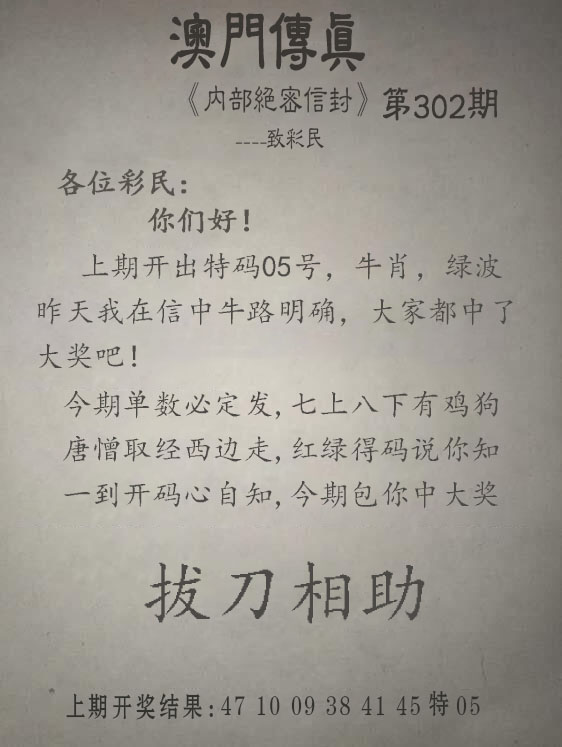 澳門傳眞
《内部絕密信封》第302期
----致彩民
各位彩民：
你们好！
上期开出特码05号，牛肖，绿波
昨天我在信中牛路明确，大家都中了
大奖吧！
今期单数必定发,七上八下有鸡狗
唐憎取经西边走,红绿得码说你知
一到开码心自知,今期包你中大奖
拔刀相助
上期开奖结果:47 10 09 38 41 45 特 05